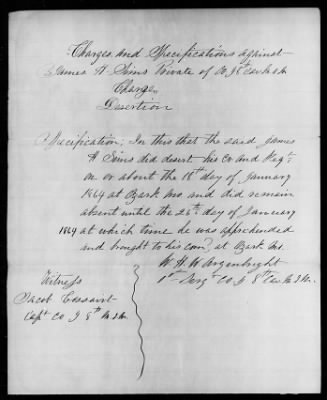 Charges and Specifications against
James H Sims Private of Co J 8th Cav M S M
Charge,
Desertion
Specification; In this that the said James
H Sims did desert his Co and Regt
on or about the 18th day of January
1864 at Ozark Mo and did remain
absent until the 26th day of January
1864 at which time he was apprehended
and brought to his com'd at Ozark Mo.
W. H. W. Argenbright
1st Sergt Co J 8th Cav M S M
Witness
Jacob Cossairt
Capt Co J 8th M S M